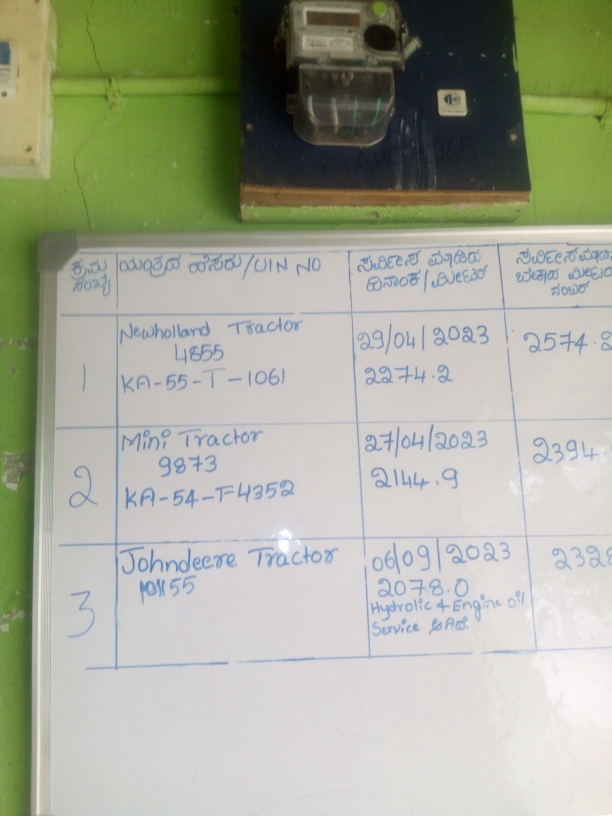 ಕ್ರಮ ಸಂಖ್ಯೆ
ಯಂತ್ರದ ಹೆಸರು/UIN NO
ಸರ್ವೀಸ್ ಮಾಡಿದ
ದಿನಾಂಕ/ಮೀಟರ್
ಸರ್ವೀಸ್ ಮಾಡ
ಬೇಕಾದ ಮೀಟರ
ನಂಬರ್
1
Newholland Tractor
4855
KA-55-T-1061
29/04/2023
2274.2
2574.2
2
Mini Tractor
9873
KA-54-T-4352
27/04/2023
2144.9
2394.
3
Johndeere Tractor
06/09/2023
2078.0
Hydrolic & Engine oil
Service ಆಗಿದೆ.
2328